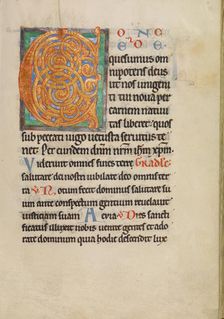 C ONC
EDE
quesumus om
nipotens deus
ut nos unigeni
ti tui noua per
carnem natiui
tas liberet: quos
sub peccati iugo uetusta seruitus te
net. Per eundem dnm nrm ihm xpm.
Viderunt omnes fines terre Grad
salutare dei nostri iubilate deo omnis terra
V. Notum fecit dominus salutare su
um ante conspectum gentium reuelauit
iusticiam suam Aeuia V. Dies sancti
ficatus illuxit nobis uenite gentes et ado
rate dominum quia hodie descendit lux